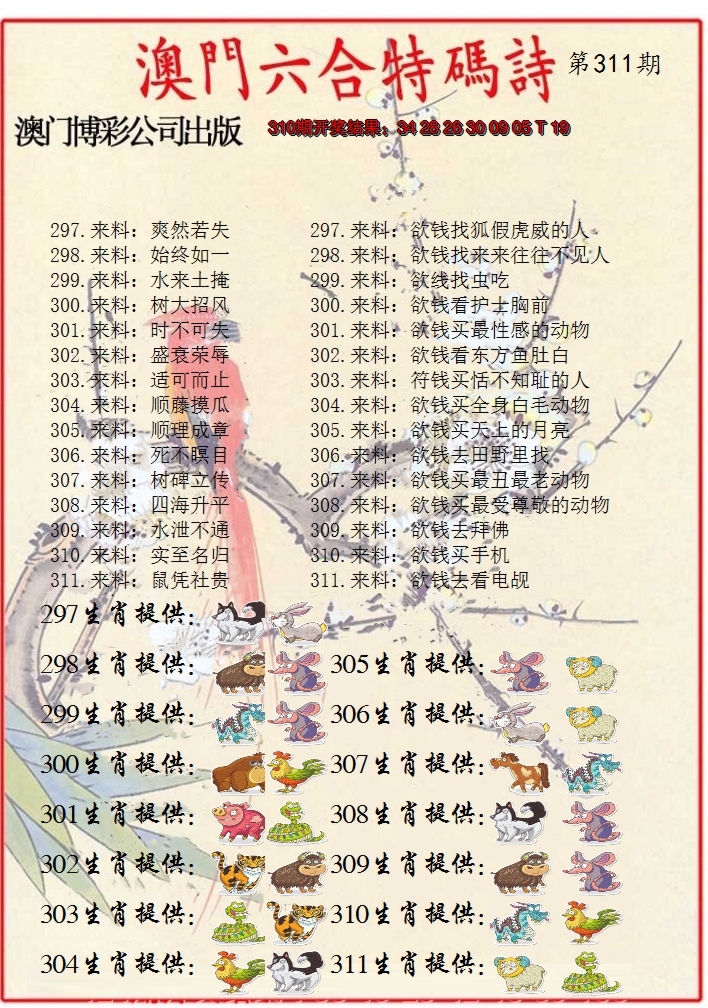 澳門六合特碼詩 第311期
澳门博彩公司出版 310期开奖结果：34 28 26 30 09 05 T 19
297.来料：爽然若失 297.来料：欲钱找狐假虎威的人
298.来料：始终如一 298.来料：欲钱找来来往往不见人
299.来料：水来土掩 299.来料：欲线找虫吃
300.来料：树大招风 300.来料：欲钱看护士胸前
301.来料：时不可失 301.来料：欲钱买最性感的动物
302.来料：盛衰荣辱 302.来料：欲钱看东方鱼肚白
303.来料：适可而止 303.来料：符钱买恬不知耻的人
304.来料：顺藤摸瓜 304.来料：欲钱买全身白毛动物
305.来料：顺理成章 305.来料：欲钱买天上的月亮
306.来料：死不瞑目 306.来料：欲钱去田野里找
307.来料：树碑立传 307.来料：欲钱买最丑最老动物
308.来料：四海升平 308.来料：欲钱买最受尊敬的动物
309.来料：水泄不通 309.来料：欲钱去拜佛
310.来料：实至名归 310.来料：欲钱买手机
311.来料：鼠凭社贵 311.来料：欲钱去看电觇
297生肖提供：
298生肖提供： 305生肖提供：
299生肖提供： 306生肖提供：
300生肖提供： 307生肖提供：
301生肖提供： 308生肖提供：
302生肖提供： 309生肖提供：
303生肖提供： 310生肖提供：
304生肖提供： 311生肖提供：